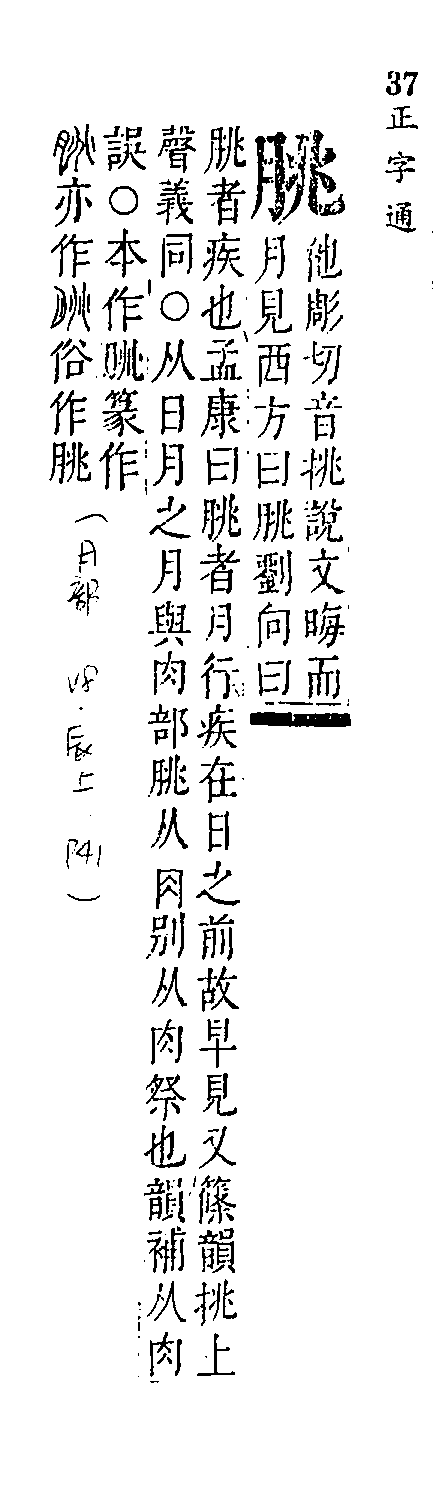 37 正字通
朓 他彫切音挑說文晦而
月見西方曰朓劉向曰
朓者疾也孟康曰朓者月行疾在日之前故早見又篠韻挑上
聲義同○从日月之月與肉部脁从肉別从肉祭也韻補从肉
誤○本作朓篆作
亦作俗作朓
(月部 辰上 )